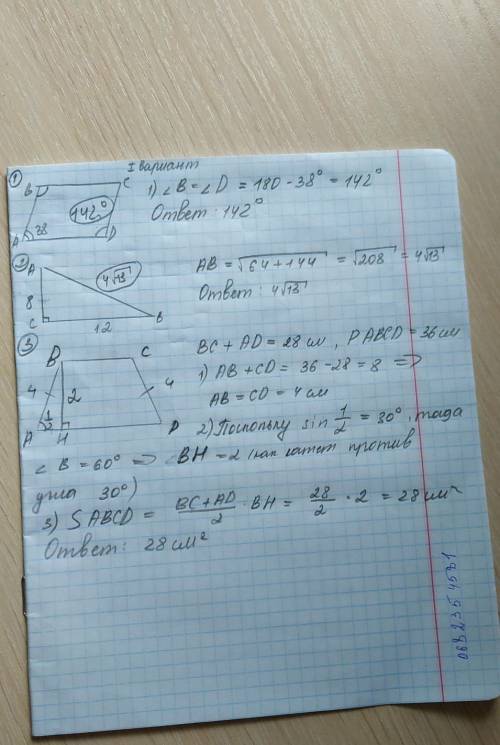 I вариант
①
B C
142°
38
A D
1) ∠B = ∠D = 180 - 38° = 142°
Ответ: 142°
②
A
4√13
8
C 12 B
AB = √64+144 = √208 = 4√13
Ответ: 4√13
③
B C
4 2 4
1/2
A H D
BC + AD = 28 см, P ABCD = 36 см
1) AB + CD = 36 - 28 = 8 =>
AB = CD = 4 см
2) Поскольку sin 1/2 = 30°, тогда
∠B = 60° => BH = 2 (как катет против
угла 30°)
3) S ABCD = BC+AD/2 · BH = 28/2 · 2 = 28 см²
Ответ: 28 см²